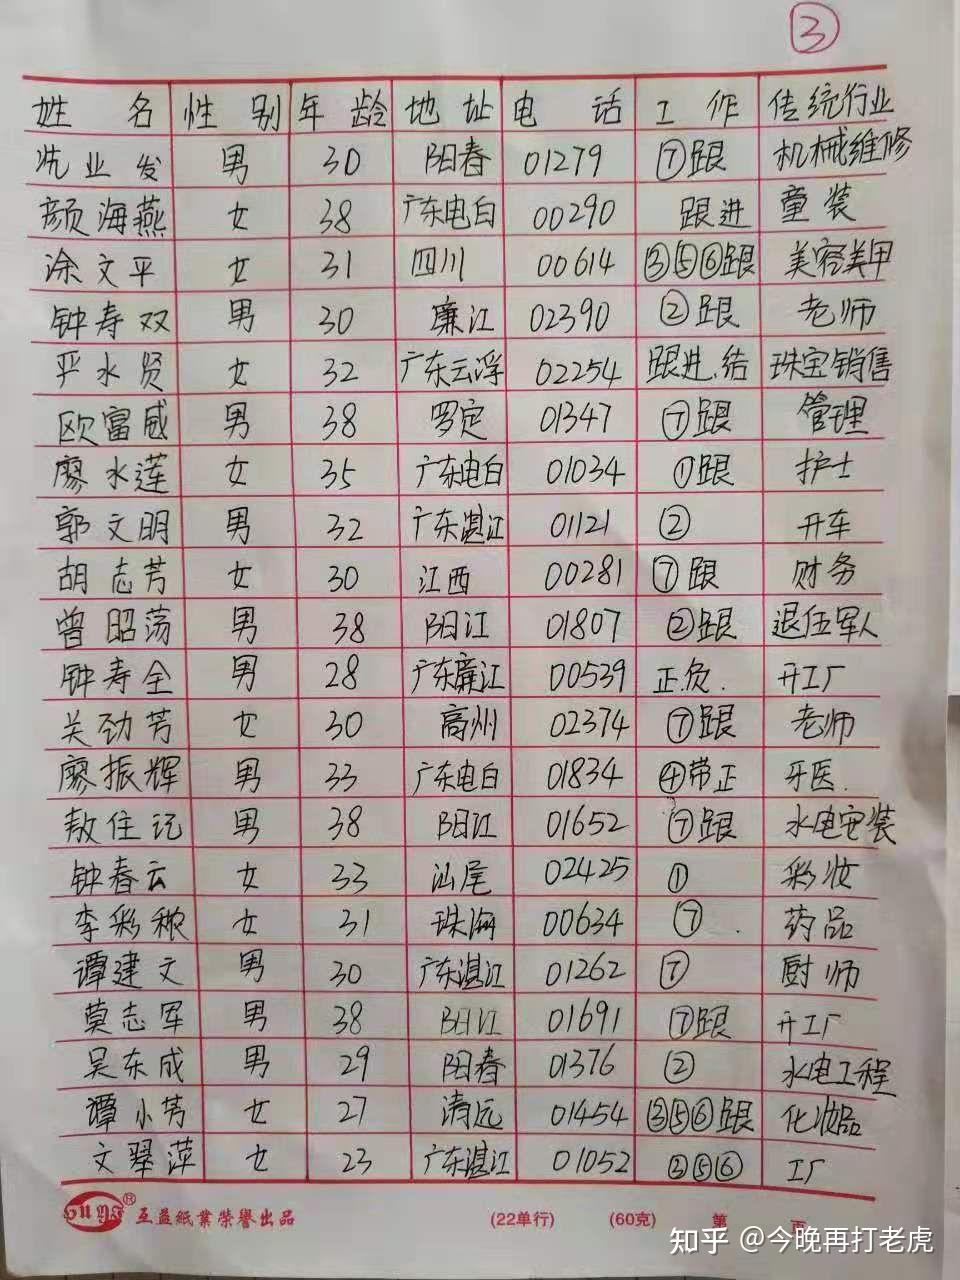 ③
姓名 性别 年龄 地址 电话 工作 传统行业
冼业发 男 30 阳春 01279 ⑦跟 机械维修
颜海燕 女 38 广东电白 00290 跟进 童装
涂文平 女 31 四川 00614 ③⑤⑥跟 美容美甲
钟寿双 男 30 廉江 02390 ②跟 老师
严水贤 女 32 广东云浮 02254 跟进.结 珠宝销售
欧富威 男 38 罗定 01347 ⑦跟 管理
廖水莲 女 35 广东电白 01034 ①跟 护士
郭文明 男 32 广东湛江 01121 ② 开车
胡志芳 女 30 江西 00281 ⑦跟 财务
曾昭荡 男 38 阳江 01807 ②跟 退伍军人
钟寿全 男 28 广东廉江 00539 正.负. 开工厂
关劲芳 女 30 高州 02374 ⑦跟 老师
廖振辉 男 33 广东电白 01834 ④带正 牙医.
敖住记 男 38 阳江 01652 ⑦跟 水电安装
钟春云 女 33 汕尾 02425 ① 彩妆
李彩秾 女 31 珠海 00634 ⑦. 药品
谭建文 男 30 广东湛江 01262 ⑦ 厨师
莫志军 男 38 阳江 01691 ⑦跟 开工厂
吴东成 男 29 阳春 01376 ② 水电工程
谭小芳 女 27 清远 01454 ③⑤⑥跟 化妆品
文翠萍 女 23 广东湛江 01052 ③⑤⑥ 工厂
® 互益紙業榮譽出品 (22单行) (60克) 第 页
知乎 @今晚再打老虎